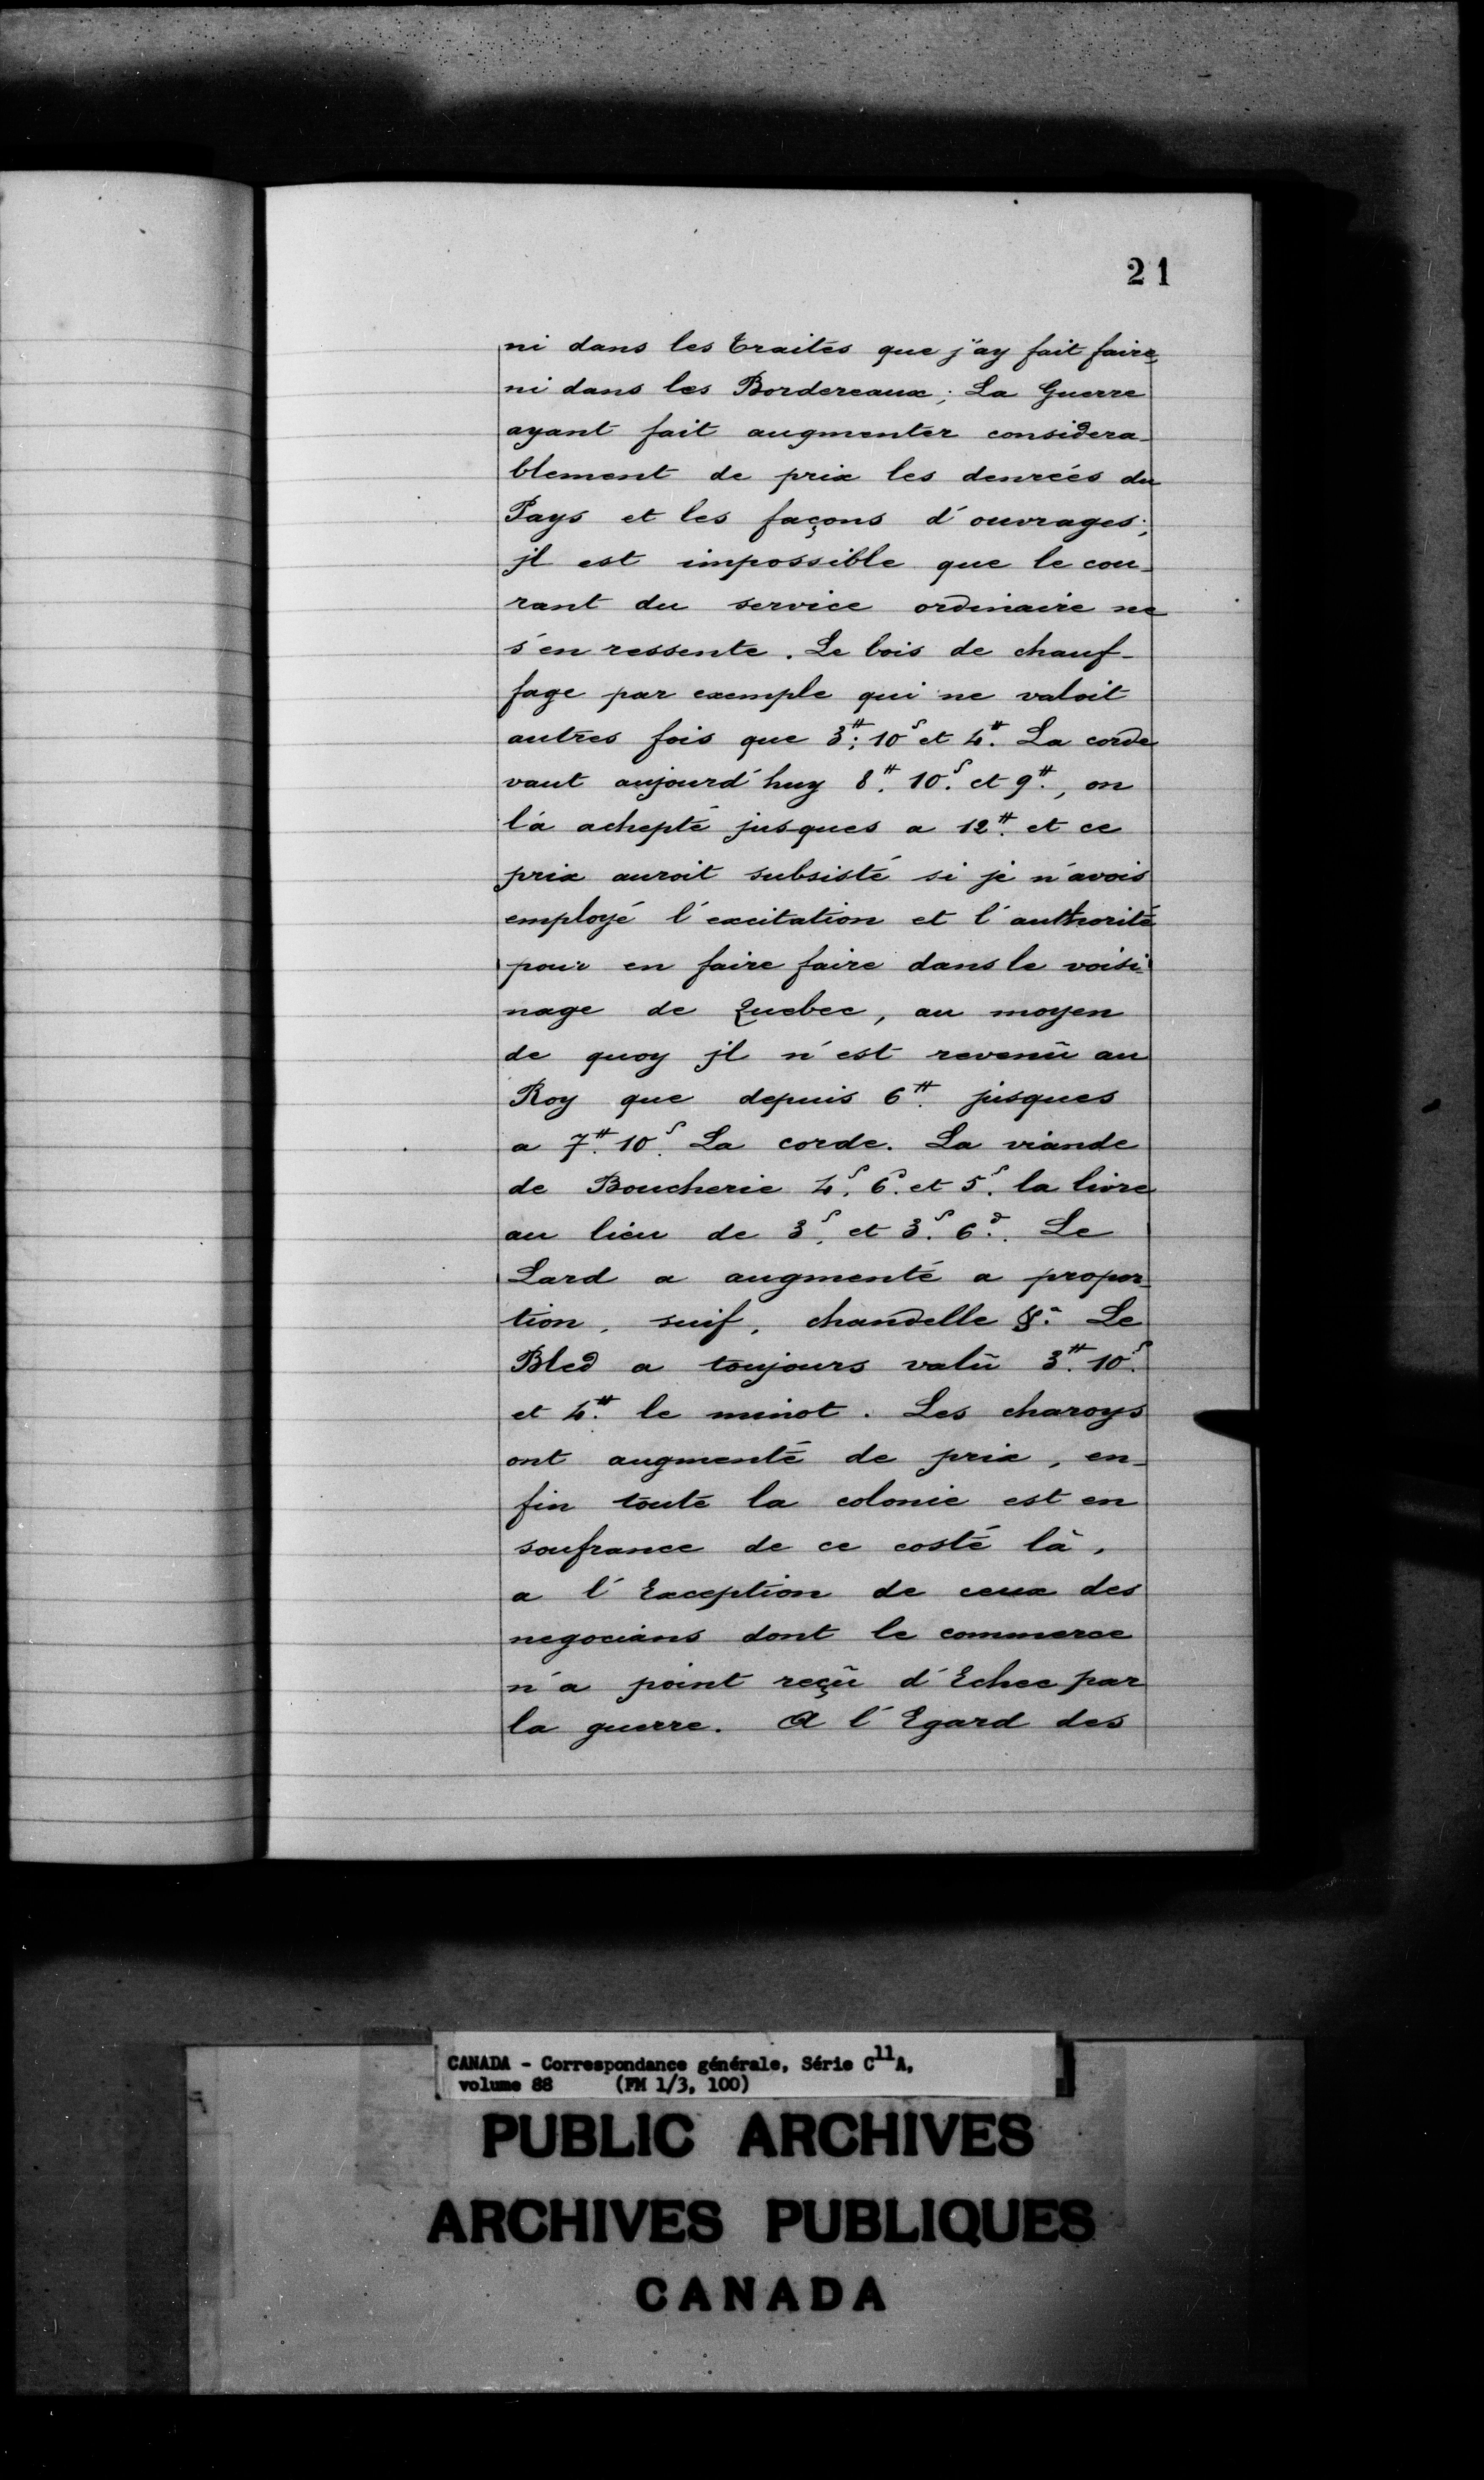 21
ni dans les traités que j'ay fait faire,
ni dans les Bordereaux; La Guerre
ayant fait augmenter considera-
blement de prix les denrées du
Pays et les façons d'ouvrages;
jl est impossible que le cou-
rant du service ordinaire ne
s'en ressente. Le bois de chauf-
fage par exemple qui ne valoit
autres fois que 3#; 10s et 4#. La corde
vaut aujourd'huy 8#. 10s. et 9#., on
l'a achepté jusques a 12#. et ce
prix auroit subsisté si je n'avois
employé l'excitation et l'authorité
pour en faire faire dans le voisi-
nage de Quebec, au moyen
de quoy jl n'est revenû au
Roy que depuis 6#. jusques
a 7#. 10s. La corde. La viande
de Boucherie 4s. 6d. et 5s. la livre
au lieu de 3s. et 3s. 6d.. Le
Lard a augmenté a propor-
tion, suif, chandelle &a. Le
Bled a toujours valû 3#. 10s.
et 4#. le minot. Les charoys
ont augmenté de prix, en-
fin toute la colonie est en
soufrance de ce costé là,
a l'Exception de ceux des
negocians dont le commerce
n'a point reçû d'Echec par
la guerre. A l'Egard des
CANADA - Correspondance générale, Série C11A,
volume 88 (FM 1/3, 100)
PUBLIC ARCHIVES
ARCHIVES PUBLIQUES
CANADA